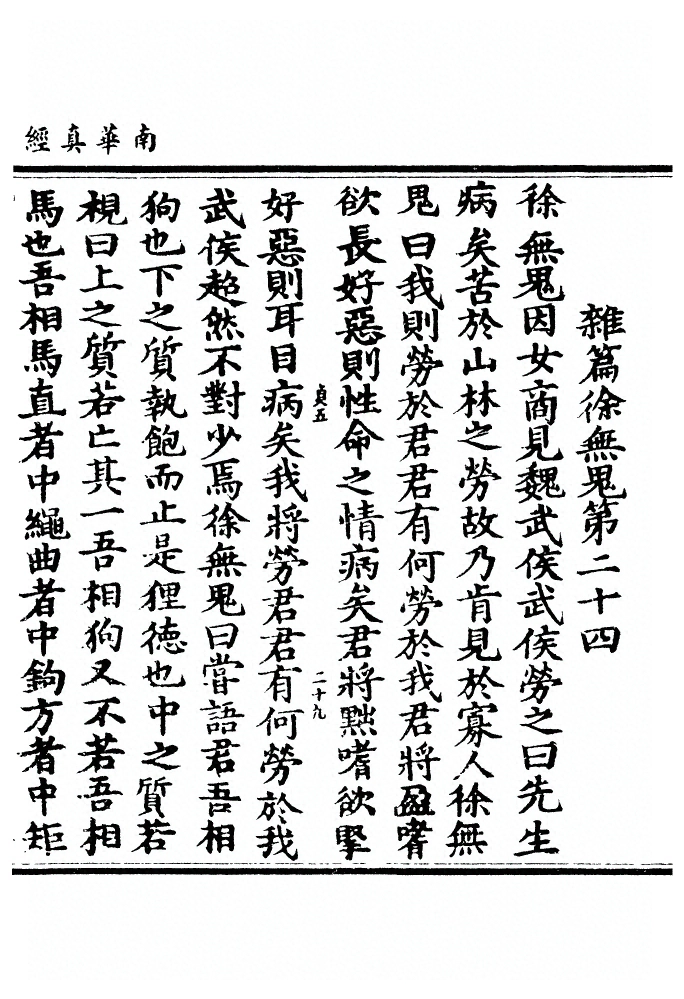 南華真經
雜篇徐無鬼第二十四
徐無鬼因女商見魏武侯武侯勞之曰先生
病矣苦於山林之勞故乃肯見於寡人徐無
鬼曰我則勞於君君有何勞於我君將盈嗜
欲長好惡則性命之情病矣君將黜嗜欲掔
貞五
二十九
好惡則耳目病矣我將勞君君有何勞於我
武侯超然不對少焉徐無鬼曰嘗語君吾相
狗也下之質執飽而止是狸德也中之質若
視曰上之質若亡其一吾相狗又不若吾相
馬也吾相馬直者中繩曲者中鉤方者中矩